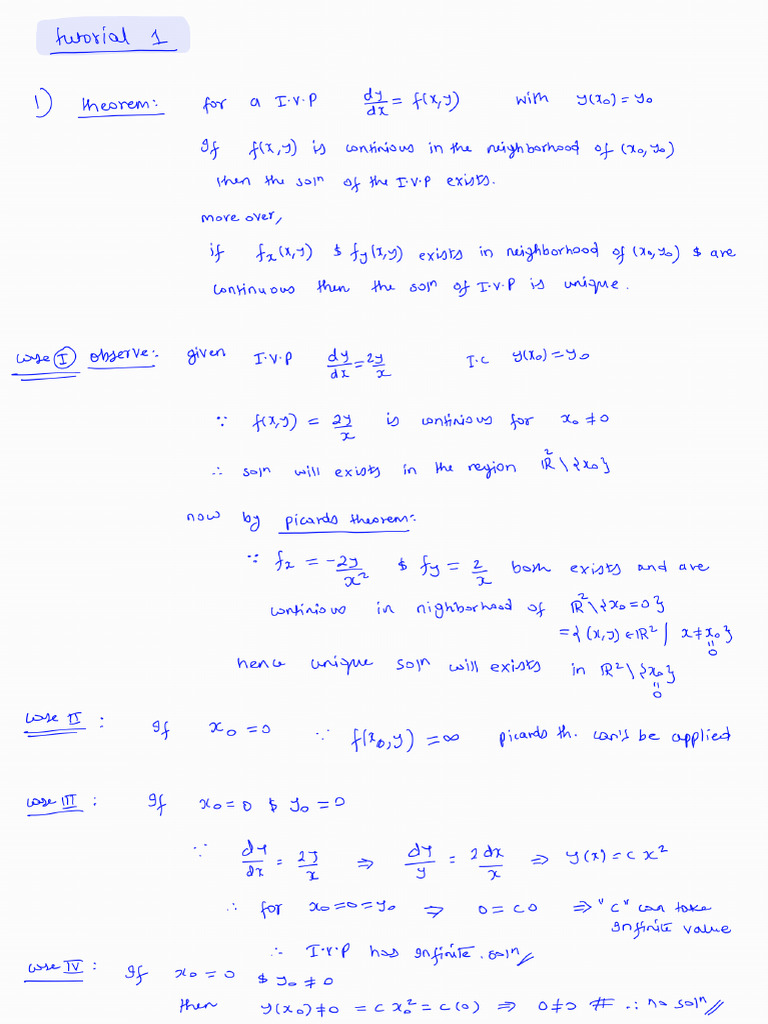 tutorial 1
1) theorem: for a I.V.P dy/dx = f(x,y) with y(x₀) = y₀
If f(x,y) is continious in the neighborhood of (x₀,y₀)
then the soln of the I.V.P exists.
more over,
if fx(x,y) $ fy(x,y) exists in neighborhood of (x₀,y₀) $ are
continuous then the soln of I.V.P is unique.
case I observe:- given I.V.P dy/dx = 2y/x I.C y(x₀) = y₀
∵ f(x,y) = 2y/x is continious for x₀ ≠ 0
∴ soln will exists in the region ℝ² \ {x₀}
now by picards theorem:-
∵ fx = -2y/x² $ fy = 2/x both exists and are
continious in nighborhood of ℝ²\{x₀=0}
= {(x,y) ∈ ℝ² | x ≠ x₀}
=0
hence unique soln will exists in ℝ²\{x₀}
=0
case II : If x₀ = 0 ∵ f(x₀,y) = ∞ picards th. can's be applied
case III : If x₀ = 0 $ y₀ = 0
∵ dy/dx = 2y/x ⇒ dy/y = 2dx/x ⇒ y(x) = c x²
∴ for x₀=0=y₀ ⇒ 0 = c0 ⇒ "c" can take
infinite value
∴ I.V.P has infinite soln//
case IV : If x₀ = 0 $ y₀ ≠ 0
then y(x₀) ≠ 0 = c x₀² = c(0) ⇒ 0≠0 # ∴ no soln//